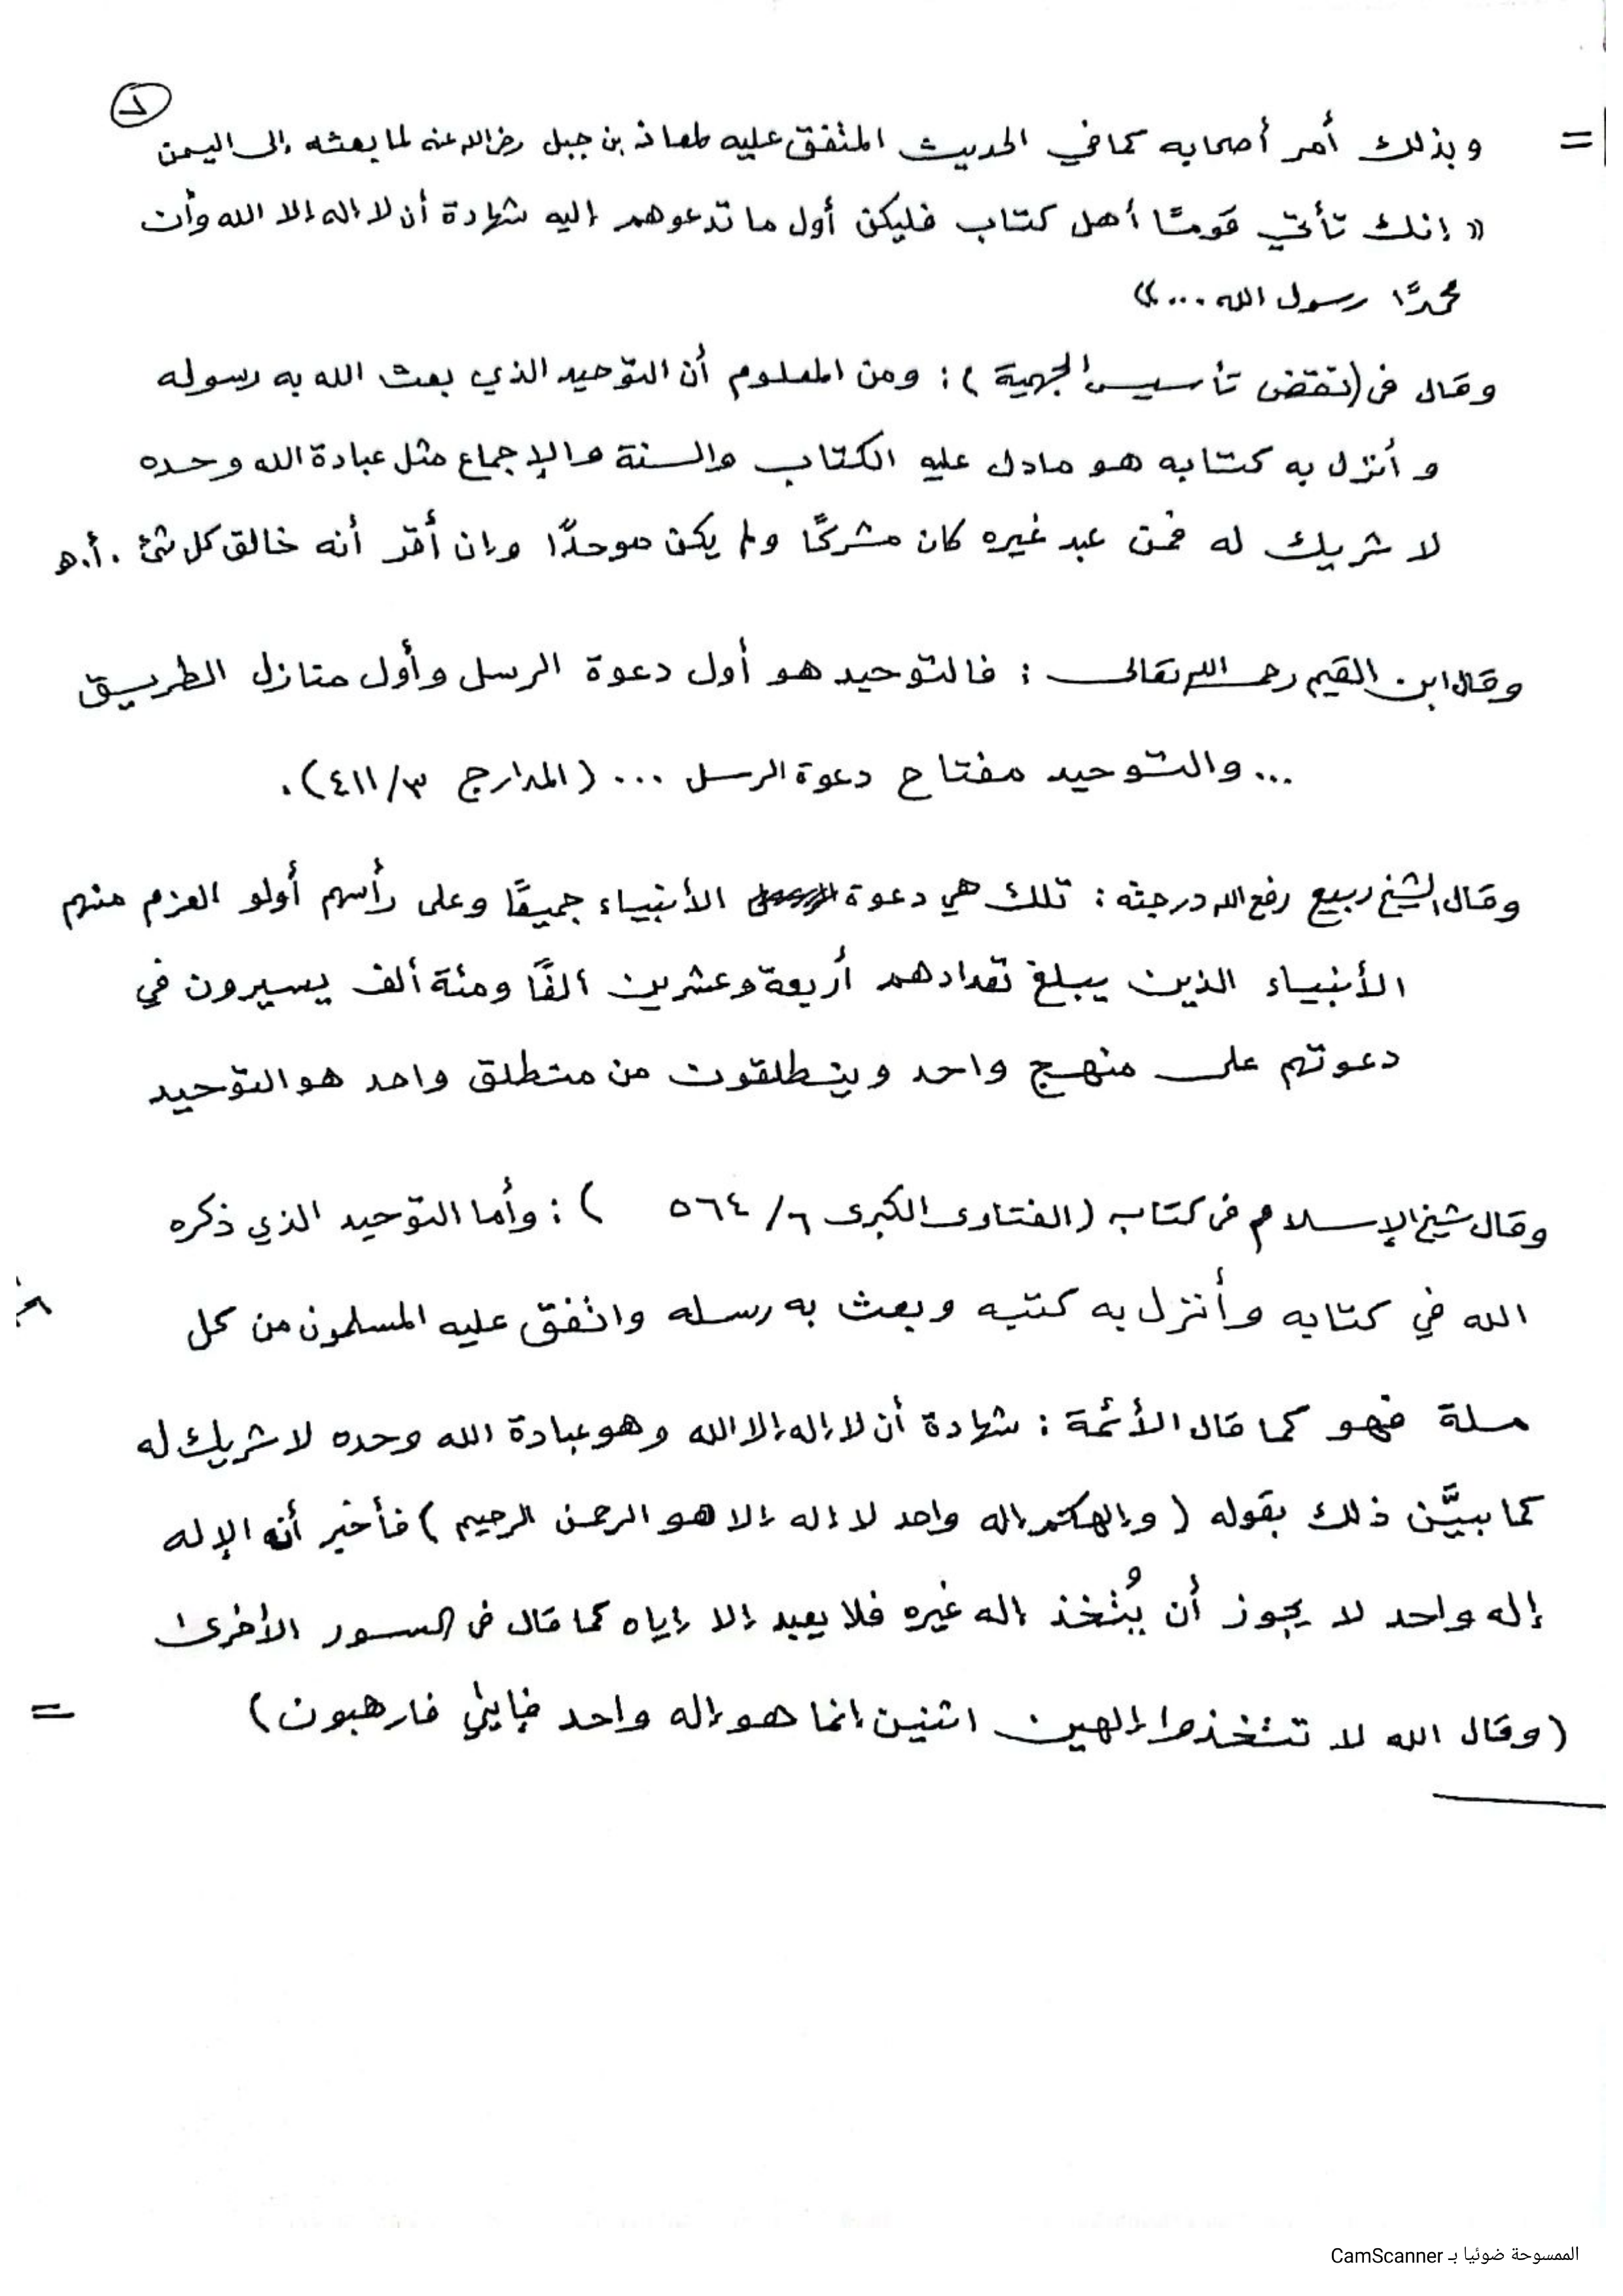 ٧
= وبذلك أمر أصحابه كما في الحديث المتفق عليه لمعاذ بن جبل رضي الله عنه لما بعثه إلى اليمن
« إنك تأتي قومًا أهل كتاب فليكن أول ما تدعوهم إليه شهادة أن لا إله إلا الله وأن
محمدًا رسول الله ... »
وقال في (نقض تأسيس الجهمية) : ومن المعلوم أن التوحيد الذي بعث الله به رسوله
وأنزل به كتابه هو ما دل عليه الكتاب والسنة والإجماع مثل عبادة الله وحده
لا شريك له فمن عبد غيره كان مشركًا ولم يكن موحدًا وإن أقر أنه خالق كل شئ . أ.هـ
وقال ابن القيم رحمه الله تعالى : فالتوحيد هو أول دعوة الرسل وأول منازل الطريق
... والتوحيد مفتاح دعوة الرسل ... (المدارج ٣/٤١١) .
وقال الشيخ ربيع رفع الله درجته : تلك هي دعوة الأنبياء جميعًا وعلى رأسهم أولو العزم منهم
الأنبياء الذين يبلغ تعدادهم أربعة وعشرين ألفًا ومئة ألف يسيرون في
دعوتهم على منهج واحد وينطلقون من منطلق واحد هو التوحيد
وقال شيخ الإسلام في كتاب (الفتاوى الكبرى ٦/ ٥٦٤ ) : وأما التوحيد الذي ذكره
الله في كتابه وأنزل به كتبه وبعث به رسله واتفق عليه المسلمون من كل
ملة فهو كما قال الأئمة : شهادة أن لا إله إلا الله وهو عبادة الله وحده لا شريك له
كما بيَّن ذلك بقوله ( وإلهكم إله واحد لا إله إلا هو الرحمن الرحيم ) فأخبر أنه الإله
إله واحد لا يجوز أن يُتخذ إله غيره فلا يعبد إلا إياه كما قال في السور الأخرى
(وقال الله لا تتخذوا إلهين اثنين إنما هو إله واحد فإيني فارهبون) =
الممسوحة ضوئيا بـ CamScanner